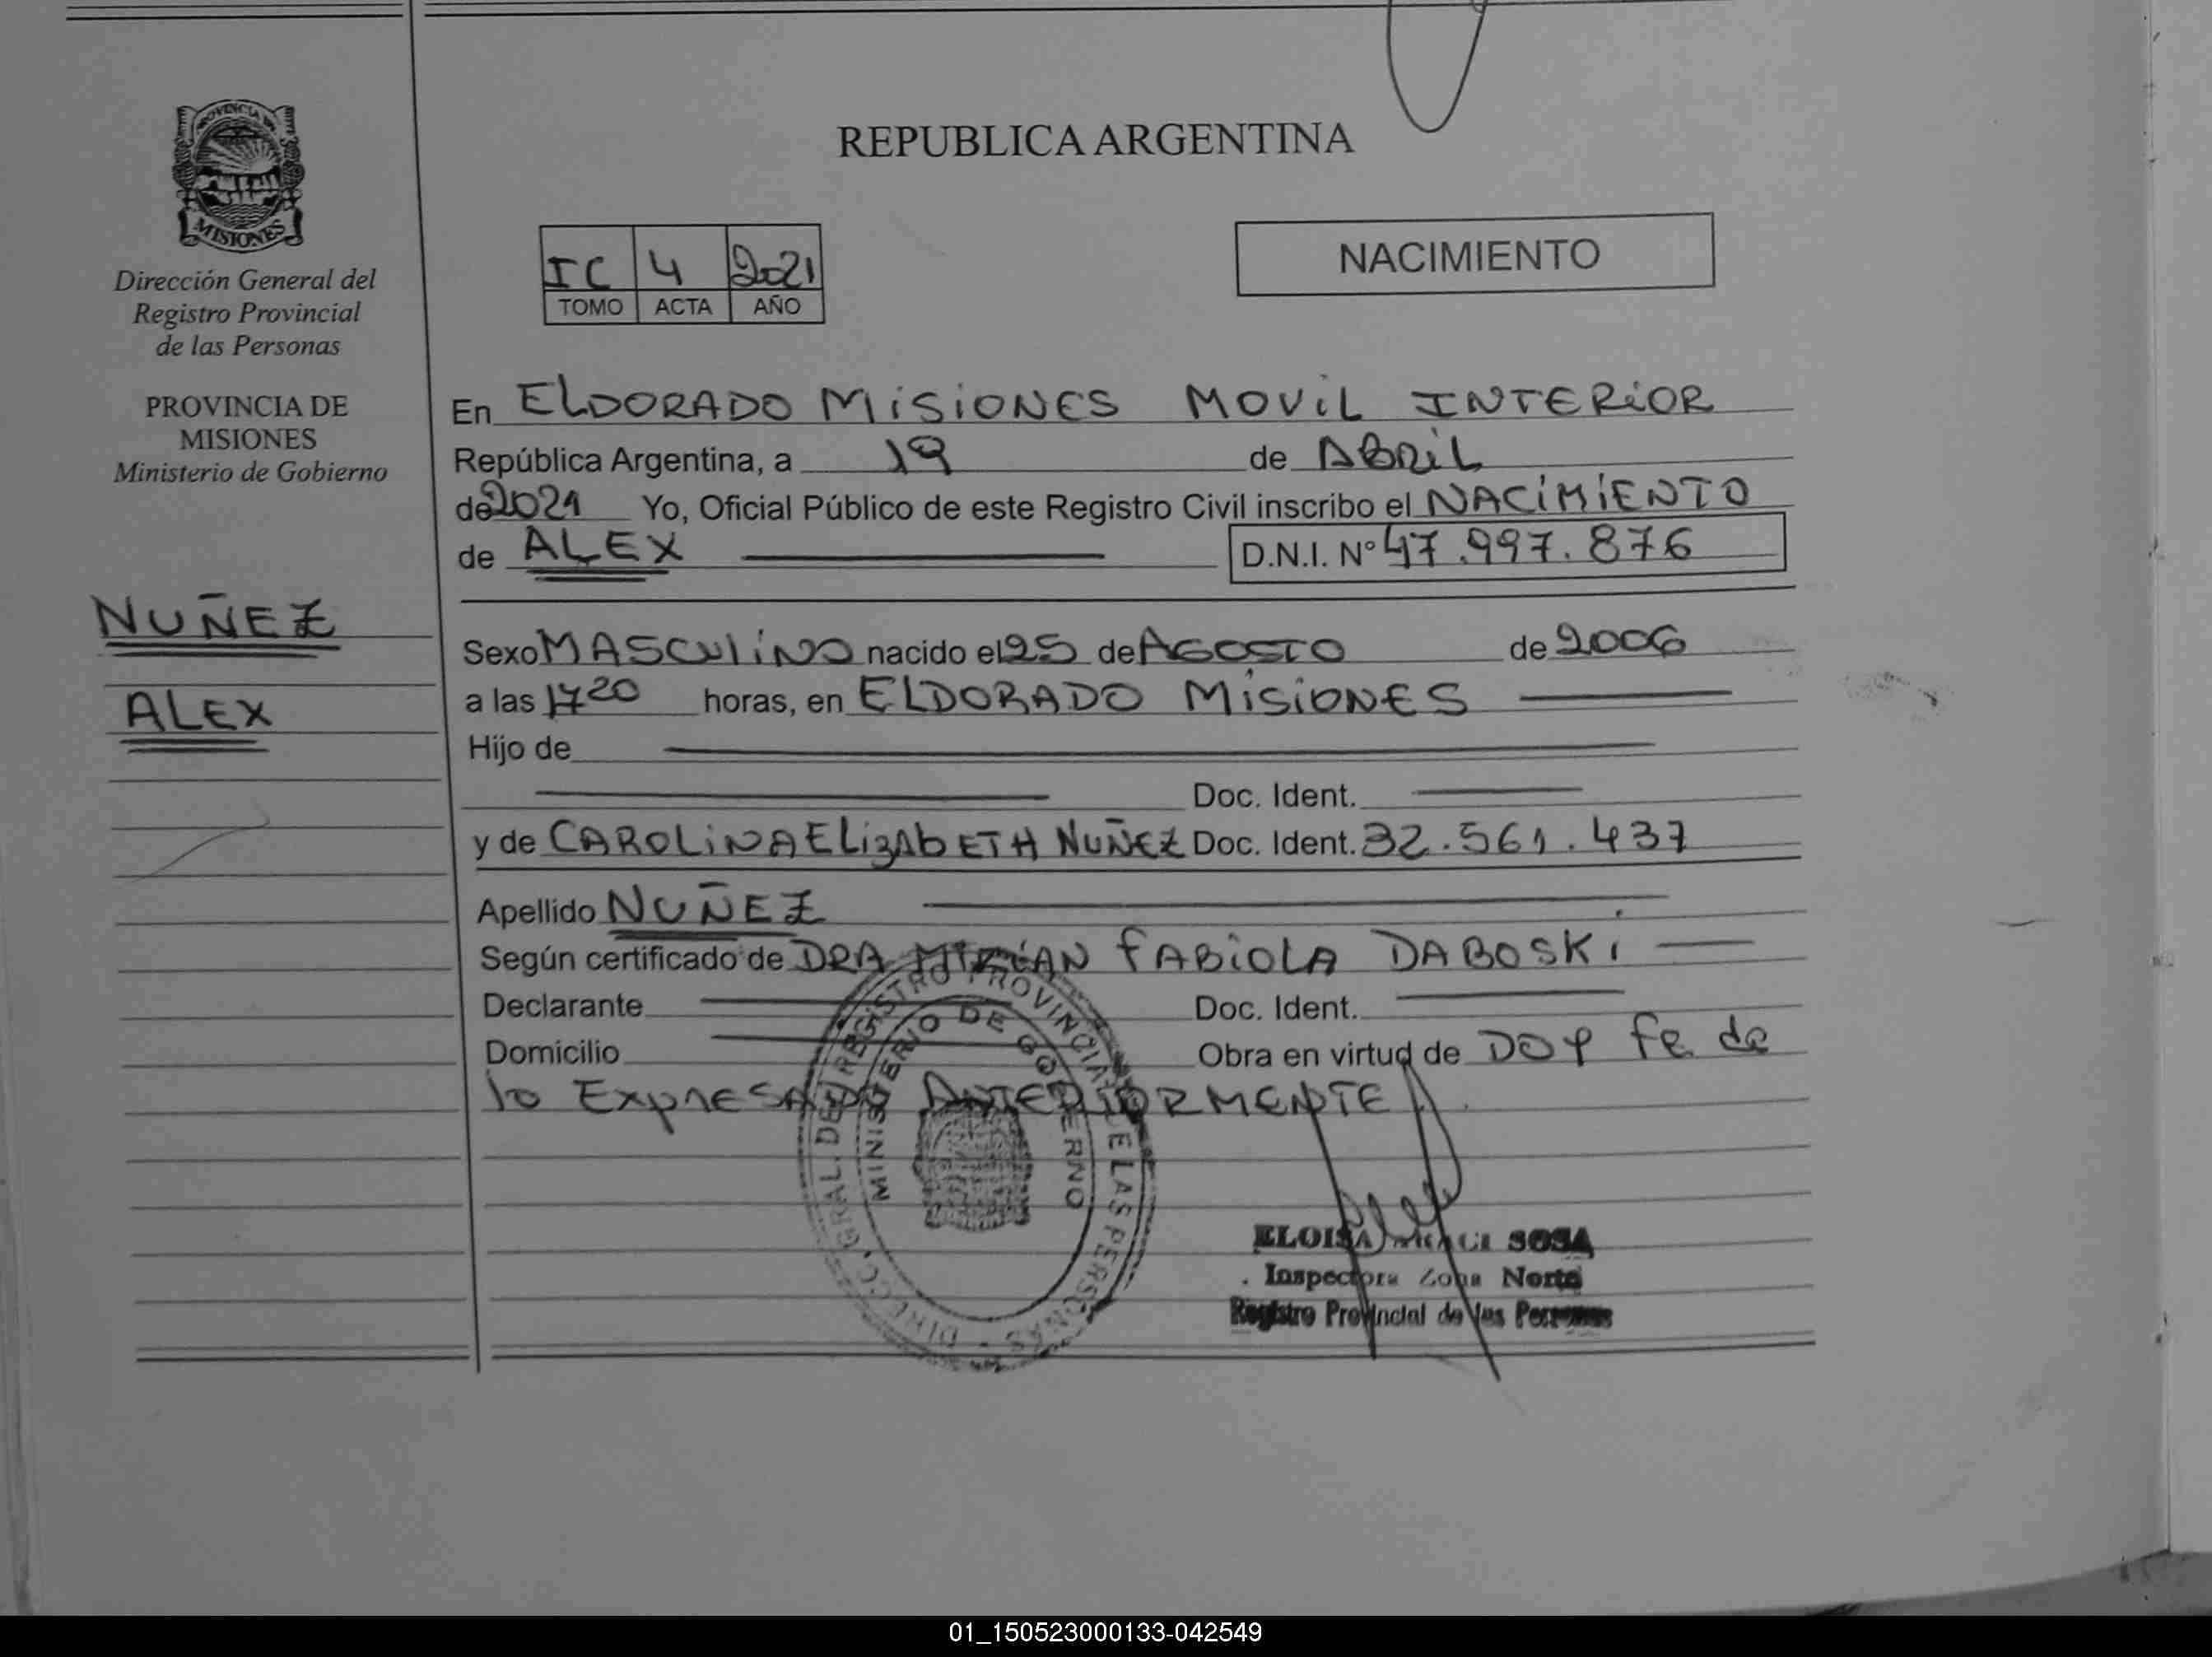 REPUBLICA ARGENTINA
PROVINCIA DE
MISIONES
Dirección General del
Registro Provincial
de las Personas
PROVINCIA DE
MISIONES
Ministerio de Gobierno
NUÑEZ
ALEX
IC 4 2021
TOMO ACTA AÑO
NACIMIENTO
En ELDORADO MISIONES MOVIL INTERIOR
República Argentina, a 19 de ABRIL
de 2021 Yo, Oficial Público de este Registro Civil inscribo el NACIMIENTO
de ALEX D.N.I. Nº 47.997.876
Sexo MASCULINO nacido el 25 de AGOSTO de 2006
a las 1720 horas, en ELDORADO MISIONES
Hijo de
Doc. Ident.
y de CAROLINA ELizAbETH NUÑEZ Doc. Ident. 32.561.437
Apellido NUÑEZ
Según certificado de DRA MIRIAN FABIOLA DABOSKI
Declarante Doc. Ident.
Domicilio Obra en virtud de DOY fe de
lo ExpRESADO ANTERIORMENTE
DIRECC. GRAL. DEL REGISTRO PROVINCIAL DE LAS PERSONAS
MINISTERIO DE GOBIERNO
ELOISA SOSA
Inspectora Zona Norte
Registro Provincial de las Personas
01_150523000133-042549